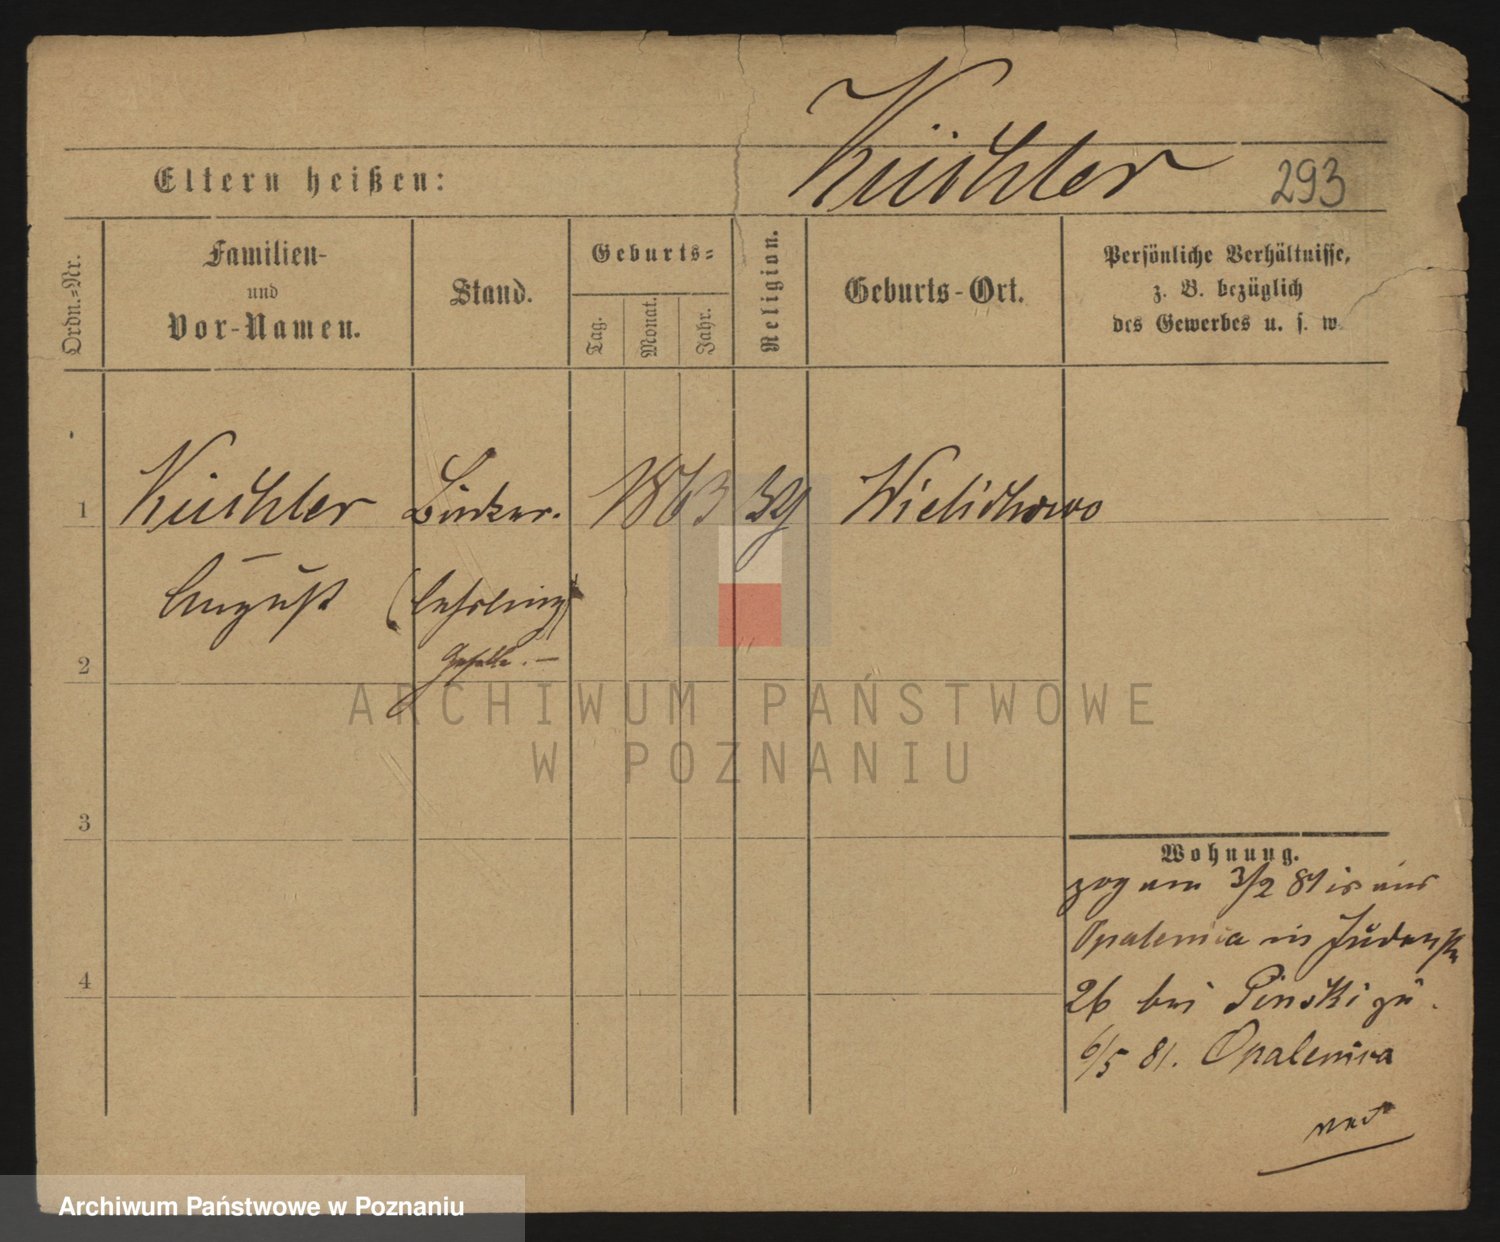 Küchler 293
Eltern heißen:
Ordn.-Nr.
Familien-
und
Vor-Namen.
Stand.
Geburts-
Tag.
Monat.
Jahr.
Religion.
Geburts-Ort.
Persönliche Verhältnisse,
z. B. bezüglich
des Gewerbes u. s. w.
1 Küchler Bäcker. 1863 Wielichowo
August (lehrling)
Geselle. —
2
ARCHIWUM PAŃSTWOWE
W POZNANIU
3
Wohnung.
zog am 3/2 81 aus
Opalenica in Judenstr
4
26 bei Pinski zu.
6/5 81. Opalenica
Archiwum Państwowe w Poznaniu